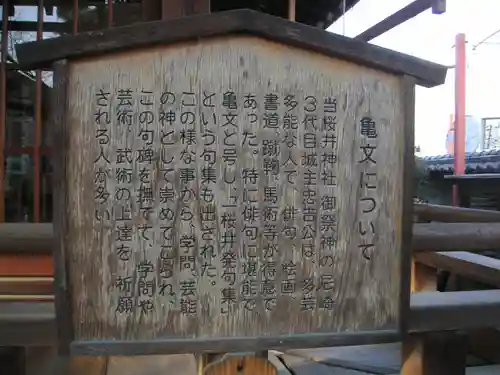 亀文について
当桜井神社 御祭神の 尼崎
3代目城主忠告公は、多芸
多能な人で、俳句、絵画
書道、蹴鞠、馬術等が得意で
あった。特に俳句に堪能で
亀文と号し、「桜井発句集」
という句集も出された。
この様な事から、学問、芸能
の神として崇めて居られ、
この句碑を撫でて、学問や
芸術、武術の上達を 祈願
される人が多い。